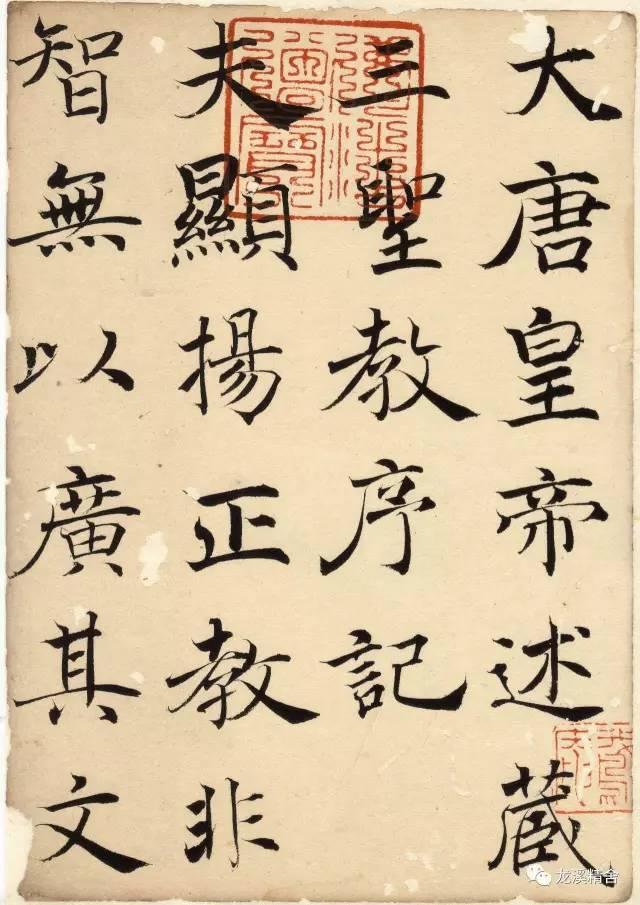 大唐皇帝述藏
三聖教序記
夫顯揚正教非
智無以廣其文
龙溪精舍